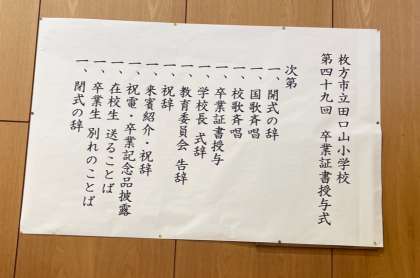 枚方市立田口山小学校
第四十九回 卒業証書授与式
次第
一、開式の辞
一、国歌斉唱
一、校歌斉唱
一、卒業証書授与
一、学校長 式辞
一、教育委員会 告辞
一、祝辞
一、来賓紹介・祝辞
一、祝電・卒業記念品披露
一、在校生 送ることば
一、卒業生 別れのことば
一、閉式の辞